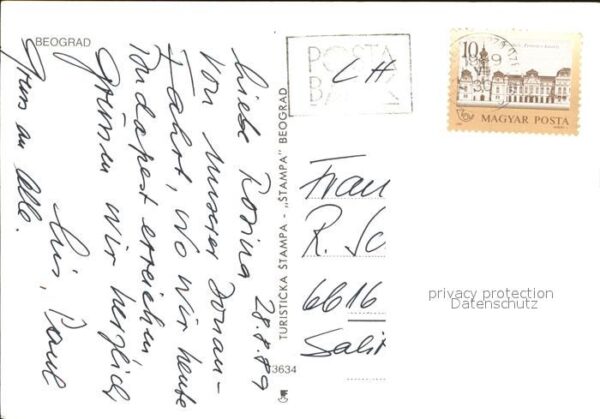 BEOGRAD
28.8.89
Liebe Rosina
Von unserer Donau-
Fahrt, wo wir heute
Budapest erreichen
Grüssen wir herzlich
Paul
Gruss an alle.
TURISTIČKA ŠTAMPA - „ŠTAMPA" BEOGRAD
3634
POSTA
BANK
CH
10
MAGYAR POSTA
Frau
R. Sc
6616
privacy protection
Datenschutz